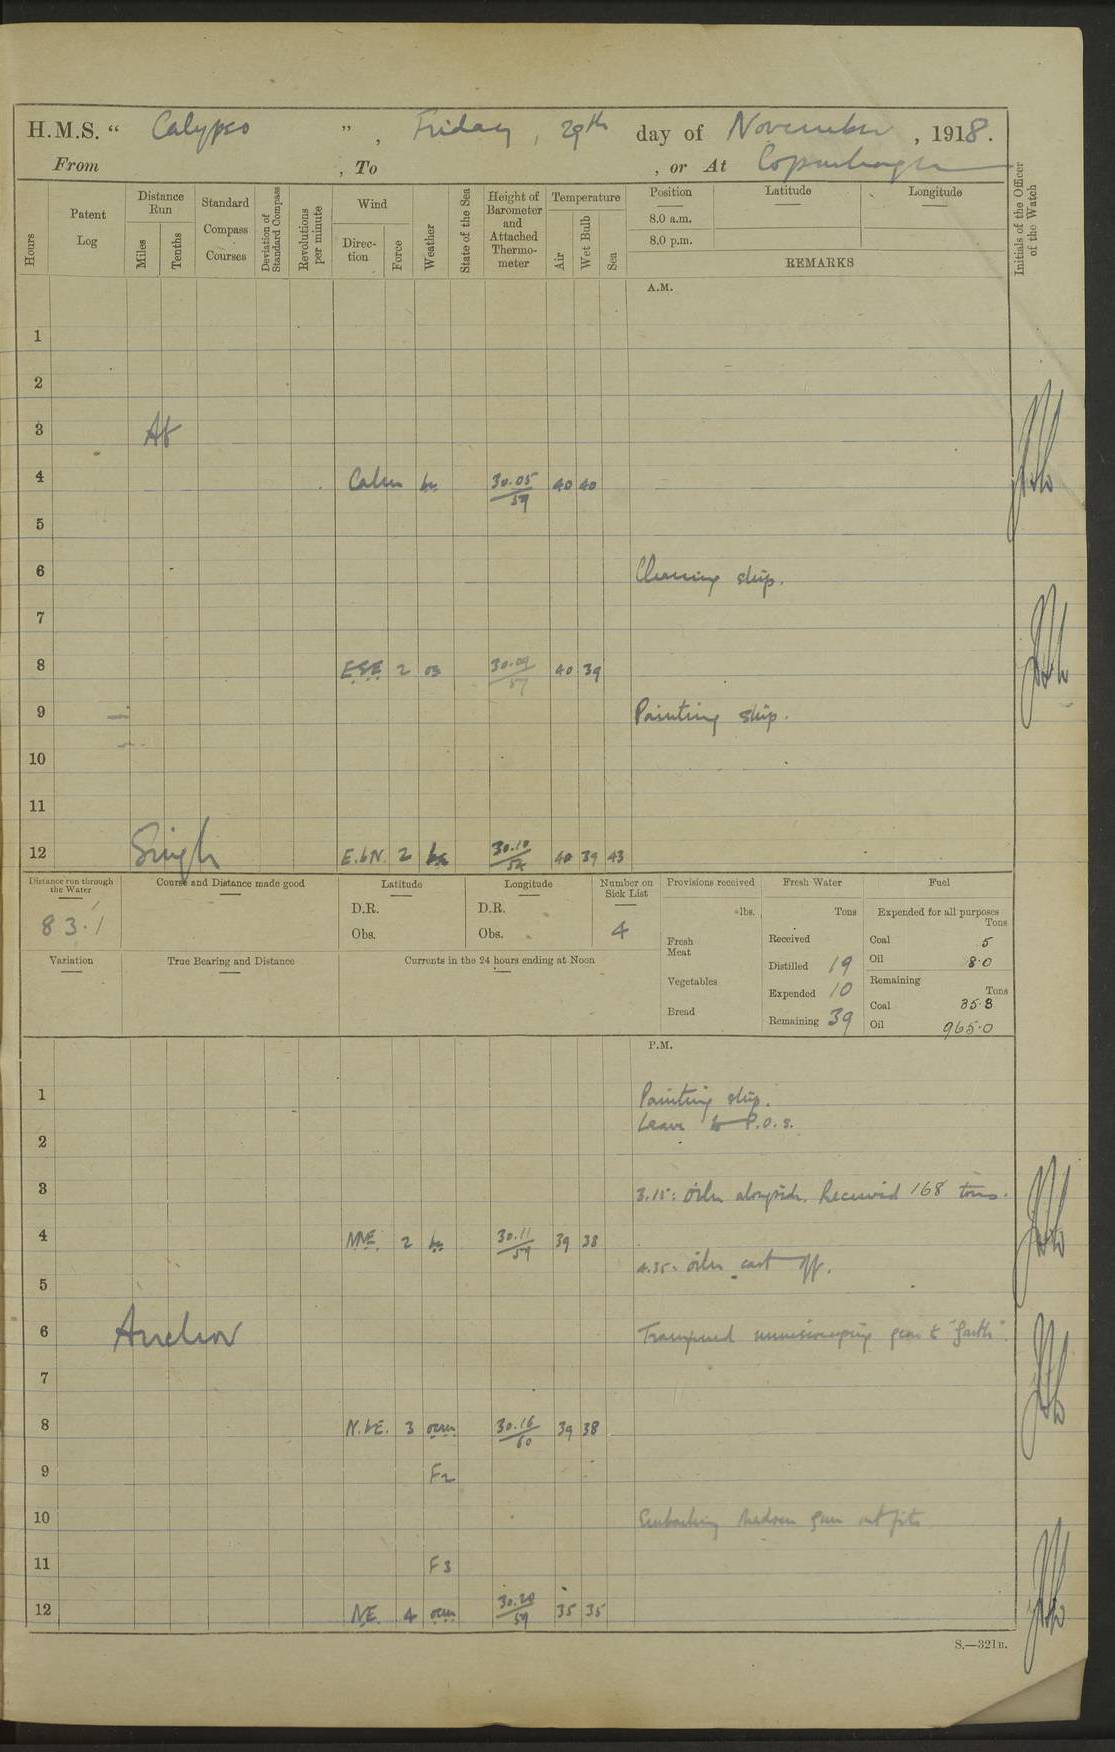 H.M.S. " Calypso ", Friday, 29th day of November, 1918.
From , To , or At Copenhagen
Hours
Patent Log
Distance Run
Miles
Tenths
Standard Compass Courses
Deviation of Standard Compass
Revolutions per minute
Wind
Direction
Force
Weather
State of the Sea
Height of Barometer and Attached Thermometer
Temperature
Air
Wet Bulb
Sea
Position
8.0 a.m.
8.0 p.m.
Latitude
Longitude
REMARKS
Initials of the Officer of the Watch
A.M.
1
2
3 At
4 Calm 30.05/59 40 40
5
6 Cleaning ship.
7
8 ESE 2 30.09/57 40 39
9 Painting ship.
10
11
12 Single E.bN. 2 30.10/52 40 39 43
Distance run through the Water
83.1
Course and Distance made good
Latitude
D.R.
Obs.
Longitude
D.R.
Obs.
Number on Sick List
4
Provisions received
lbs.
Fresh Meat
Vegetables
Bread
Fresh Water
Tons
Received
Distilled 19
Expended 10
Remaining 39
Fuel
Expended for all purposes
Tons
Coal 5
Oil 8.0
Remaining
Tons
Coal 35.3
Oil 965.0
Variation
True Bearing and Distance
Currents in the 24 hours ending at Noon
P.M.
1 Painting ship.
Leave to P.O.s.
2
3 3.15: Oiler alongside. Received 168 tons.
4 NNE. 2 30.11/59 39 38
4.35: Oiler cast off.
5
6 Anchor Transferred minesweeping gear to "Garth".
7
8 N.bE. 3 ocm 30.16/60 39 38
9 F2
10 Embarking gun outfits
11 F3
12 NE. 4 ocm 30.20/59 35 35
S.—321B.